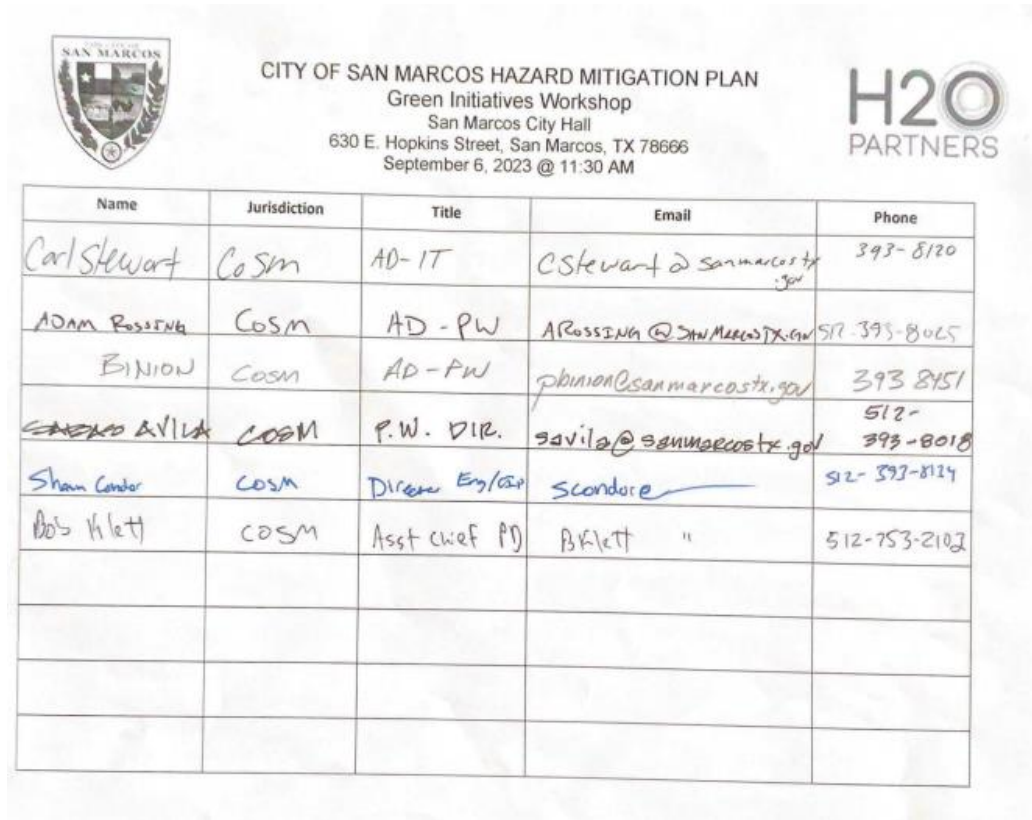 SAN MARCOS
CITY OF SAN MARCOS HAZARD MITIGATION PLAN
Green Initiatives Workshop
San Marcos City Hall
630 E. Hopkins Street, San Marcos, TX 78666
September 6, 2023 @ 11:30 AM
H2O
PARTNERS
Name Jurisdiction Title Email Phone
Carl Stewart CoSm AD-IT CStewart@sanmarcostx.gov 393-8120
ADAM ROSSING COSM AD-PW AROSSING@SANMARCOSTX.GOV 512-393-8025
BINION COSM AD-PW pbinion@sanmarcostx.gov 393 8451
AVILA COSM P.W. DIR. savila@sanmarcostx.gov 512-393-8018
COSM Eng/CIP scondor@ 512-393-8134
Bob Klett COSM Asst Chief PD BKlett " 512-753-2103